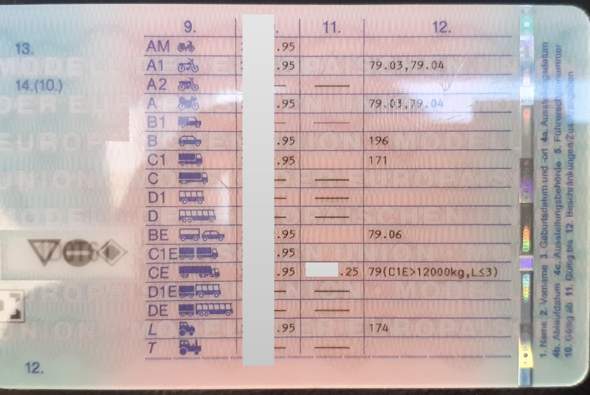 9. 11. 12.
13.
AM .95
A1 .95 79.03,79.04
14.(10.)
A2 — —
A .95 79.03,79.04
B1 — —
B .95 196
C1 .95 171
C — —
D1 — —
D — —
BE .95 79.06
C1E .95
CE .95 .25 79(C1E>12000kg,L≤3)
D1E — —
DE — —
L .95 174
T — —
12.
1. Name 2. Vorname 3. Geburtsdatum und -ort 4a. Ausstellungsdatum
4b. Ablaufdatum 4c. Ausstellungsbehörde 5. Führerscheinnummer
10. Gültig ab 11. Gültig bis 12. Beschränkungen